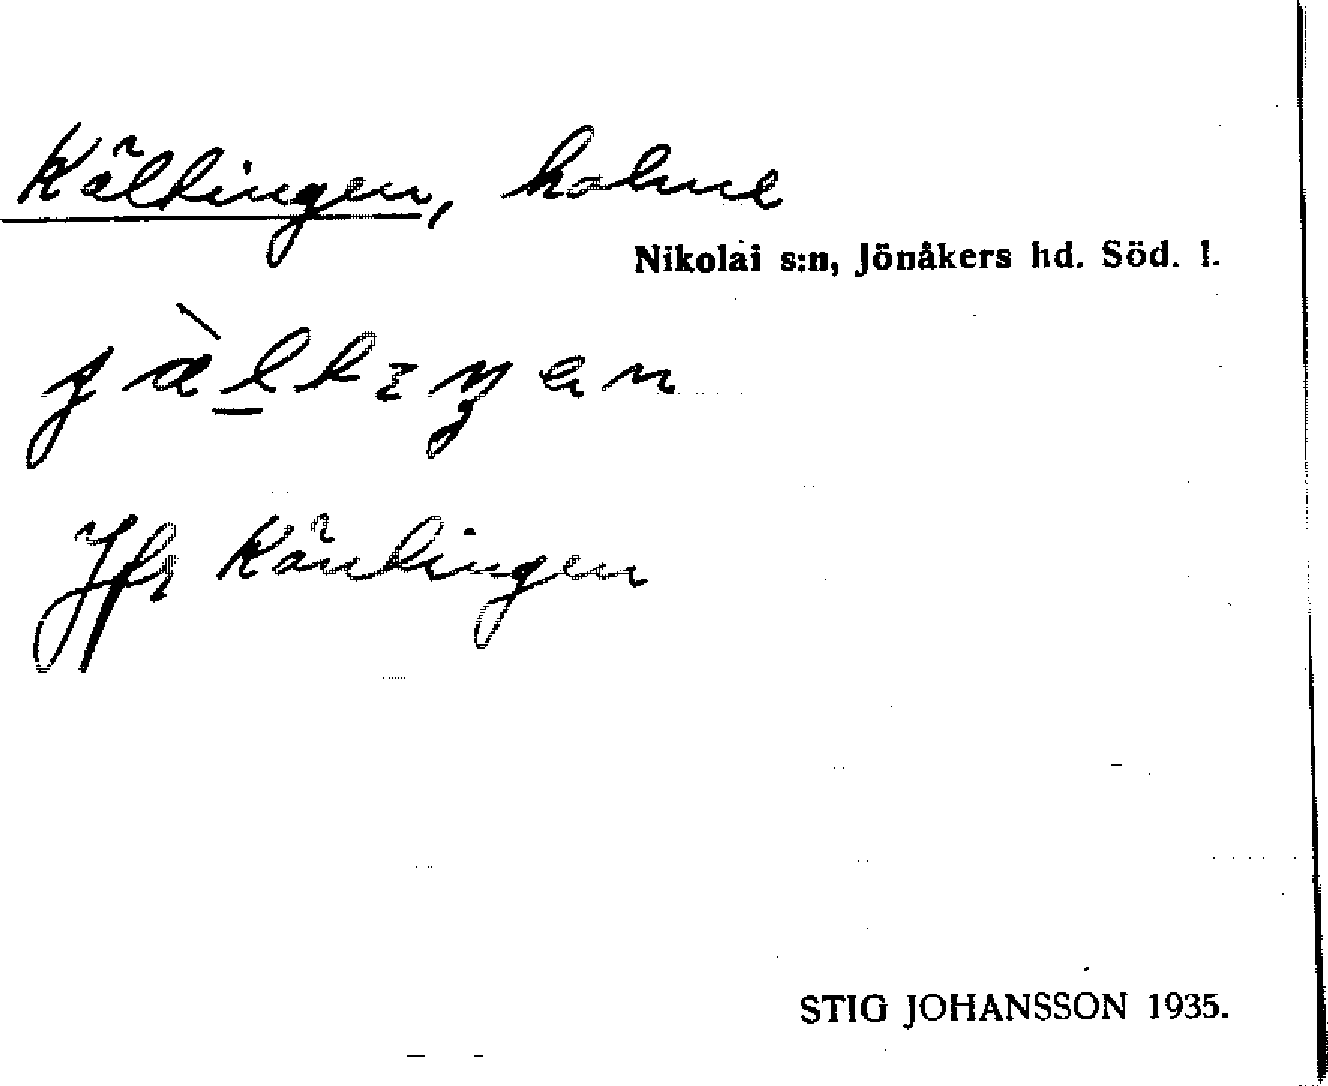 Kälkingen, holme
Nikolai s:n, Jönåkers hd. Söd. l.
Jfr Känkingen
STIG JOHANSSON 1935.